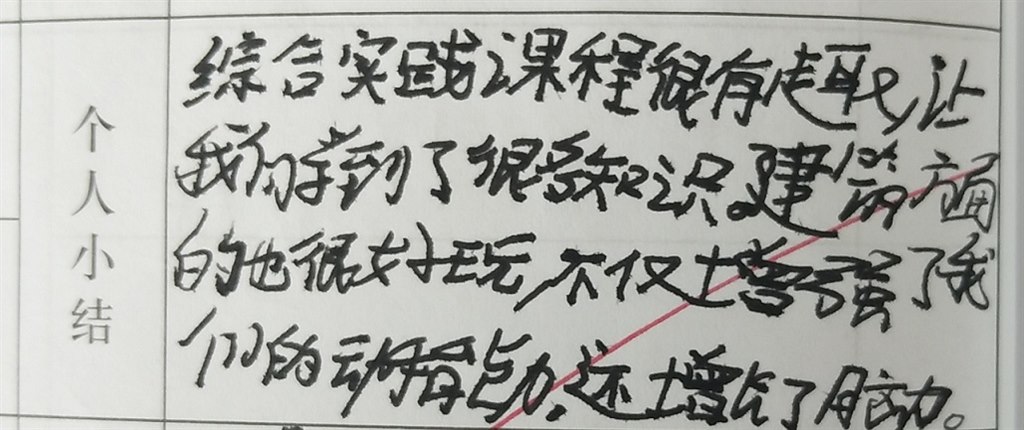 个人小结
综合实践课程很有趣,让
我们学到了很多知识,建筑方面
的也很好玩,不仅增强了我
们的动脑能力,还增长了脑力。